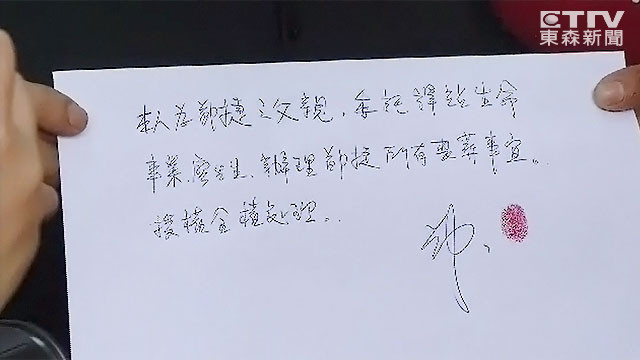 CTTV
東森新聞
本人為鄭捷之父親，委託譯站生命
事業，廖先生，辦理鄭捷所有喪葬事宜。
授權全權處理。